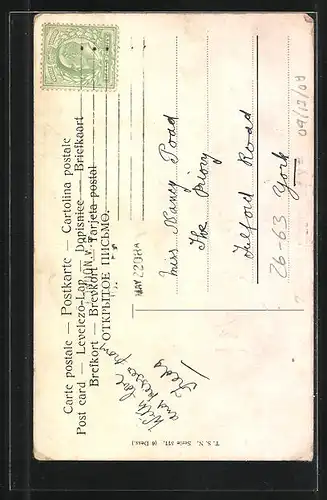 Carte postale — Postkarte — Cartolina postale
Post card — Levelezo-Lap — Dopisnice — Briefkaart
Brefkort — Brevkort — Tarjeta postal
ОТКРЫТОЕ ПИСЬМО.
MAY 22 08
With love
and kisses from
Teddy
Miss Nancy Poad
The Priory
Fulford Road
York
26-63
09/12/08
T. S. N. Serie 377. (6 Dess.)